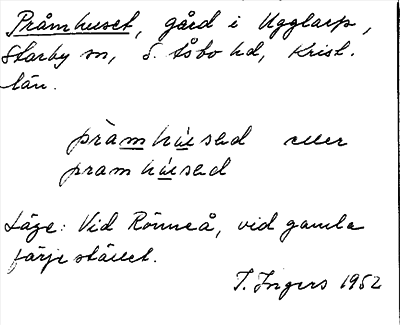 Pråmhuset, gård i Ugglarp,
Starby sn, S. Åsbo hd, Krist.
län.
pràmhúsad eller
pramhúsad
Läge: Vid Rönneå, vid gamla
färjestället.
I. Ingers 1952